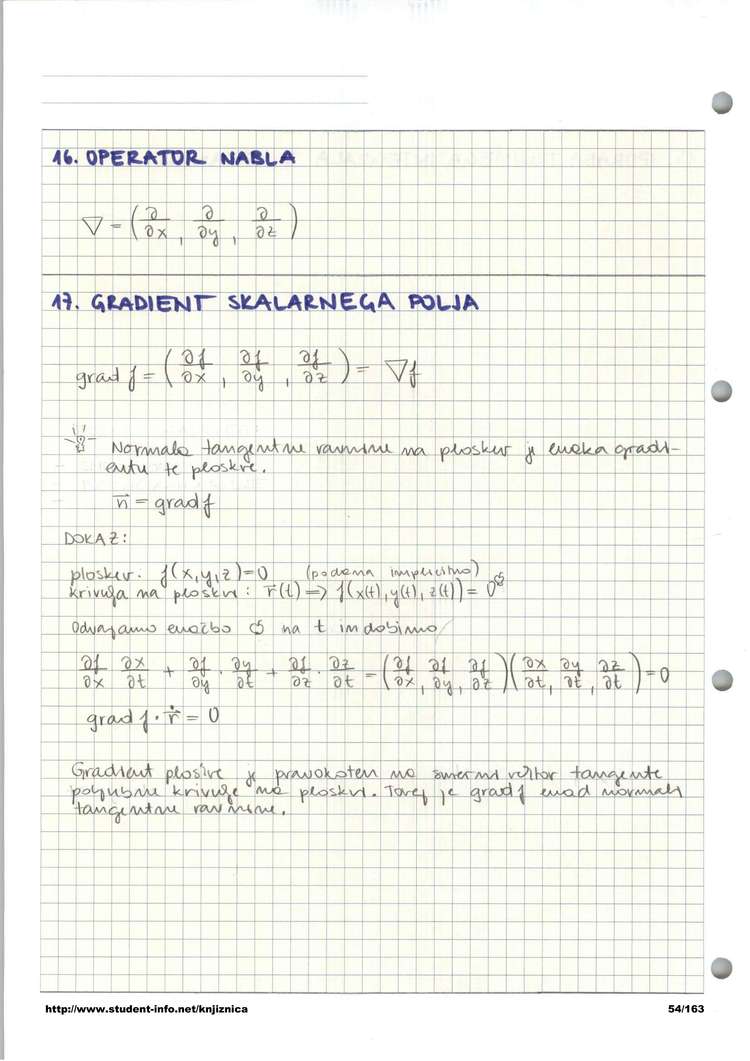 16. OPERATOR NABLA
∇ = (∂/∂x, ∂/∂y, ∂/∂z)
17. GRADIENT SKALARNEGA POLJA
grad f = (∂f/∂x, ∂f/∂y, ∂f/∂z) = ∇f
Normala tangentne ravnine na ploskev je enaka gradi-
entu te ploskve.
n⃗ = grad f
DOKAZ:
ploskev: f(x,y,z)=0 (podana implicitno)
krivulja na ploskvi: r⃗(t) => f(x(t), y(t), z(t)) = 0
Odvajamo enačbo na t in dobimo
∂f/∂x ∂x/∂t + ∂f/∂y · ∂y/∂t + ∂f/∂z · ∂z/∂t = (∂f/∂x, ∂f/∂y, ∂f/∂z)(∂x/∂t, ∂y/∂t, ∂z/∂t) = 0
grad f · ṙ⃗ = 0
Gradient ploskve je pravokoten na smerni vektor tangente
poljubne krivulje na ploskvi. Torej je grad f enak normali
tangentne ravnine.
http://www.student-info.net/knjiznica 54/163